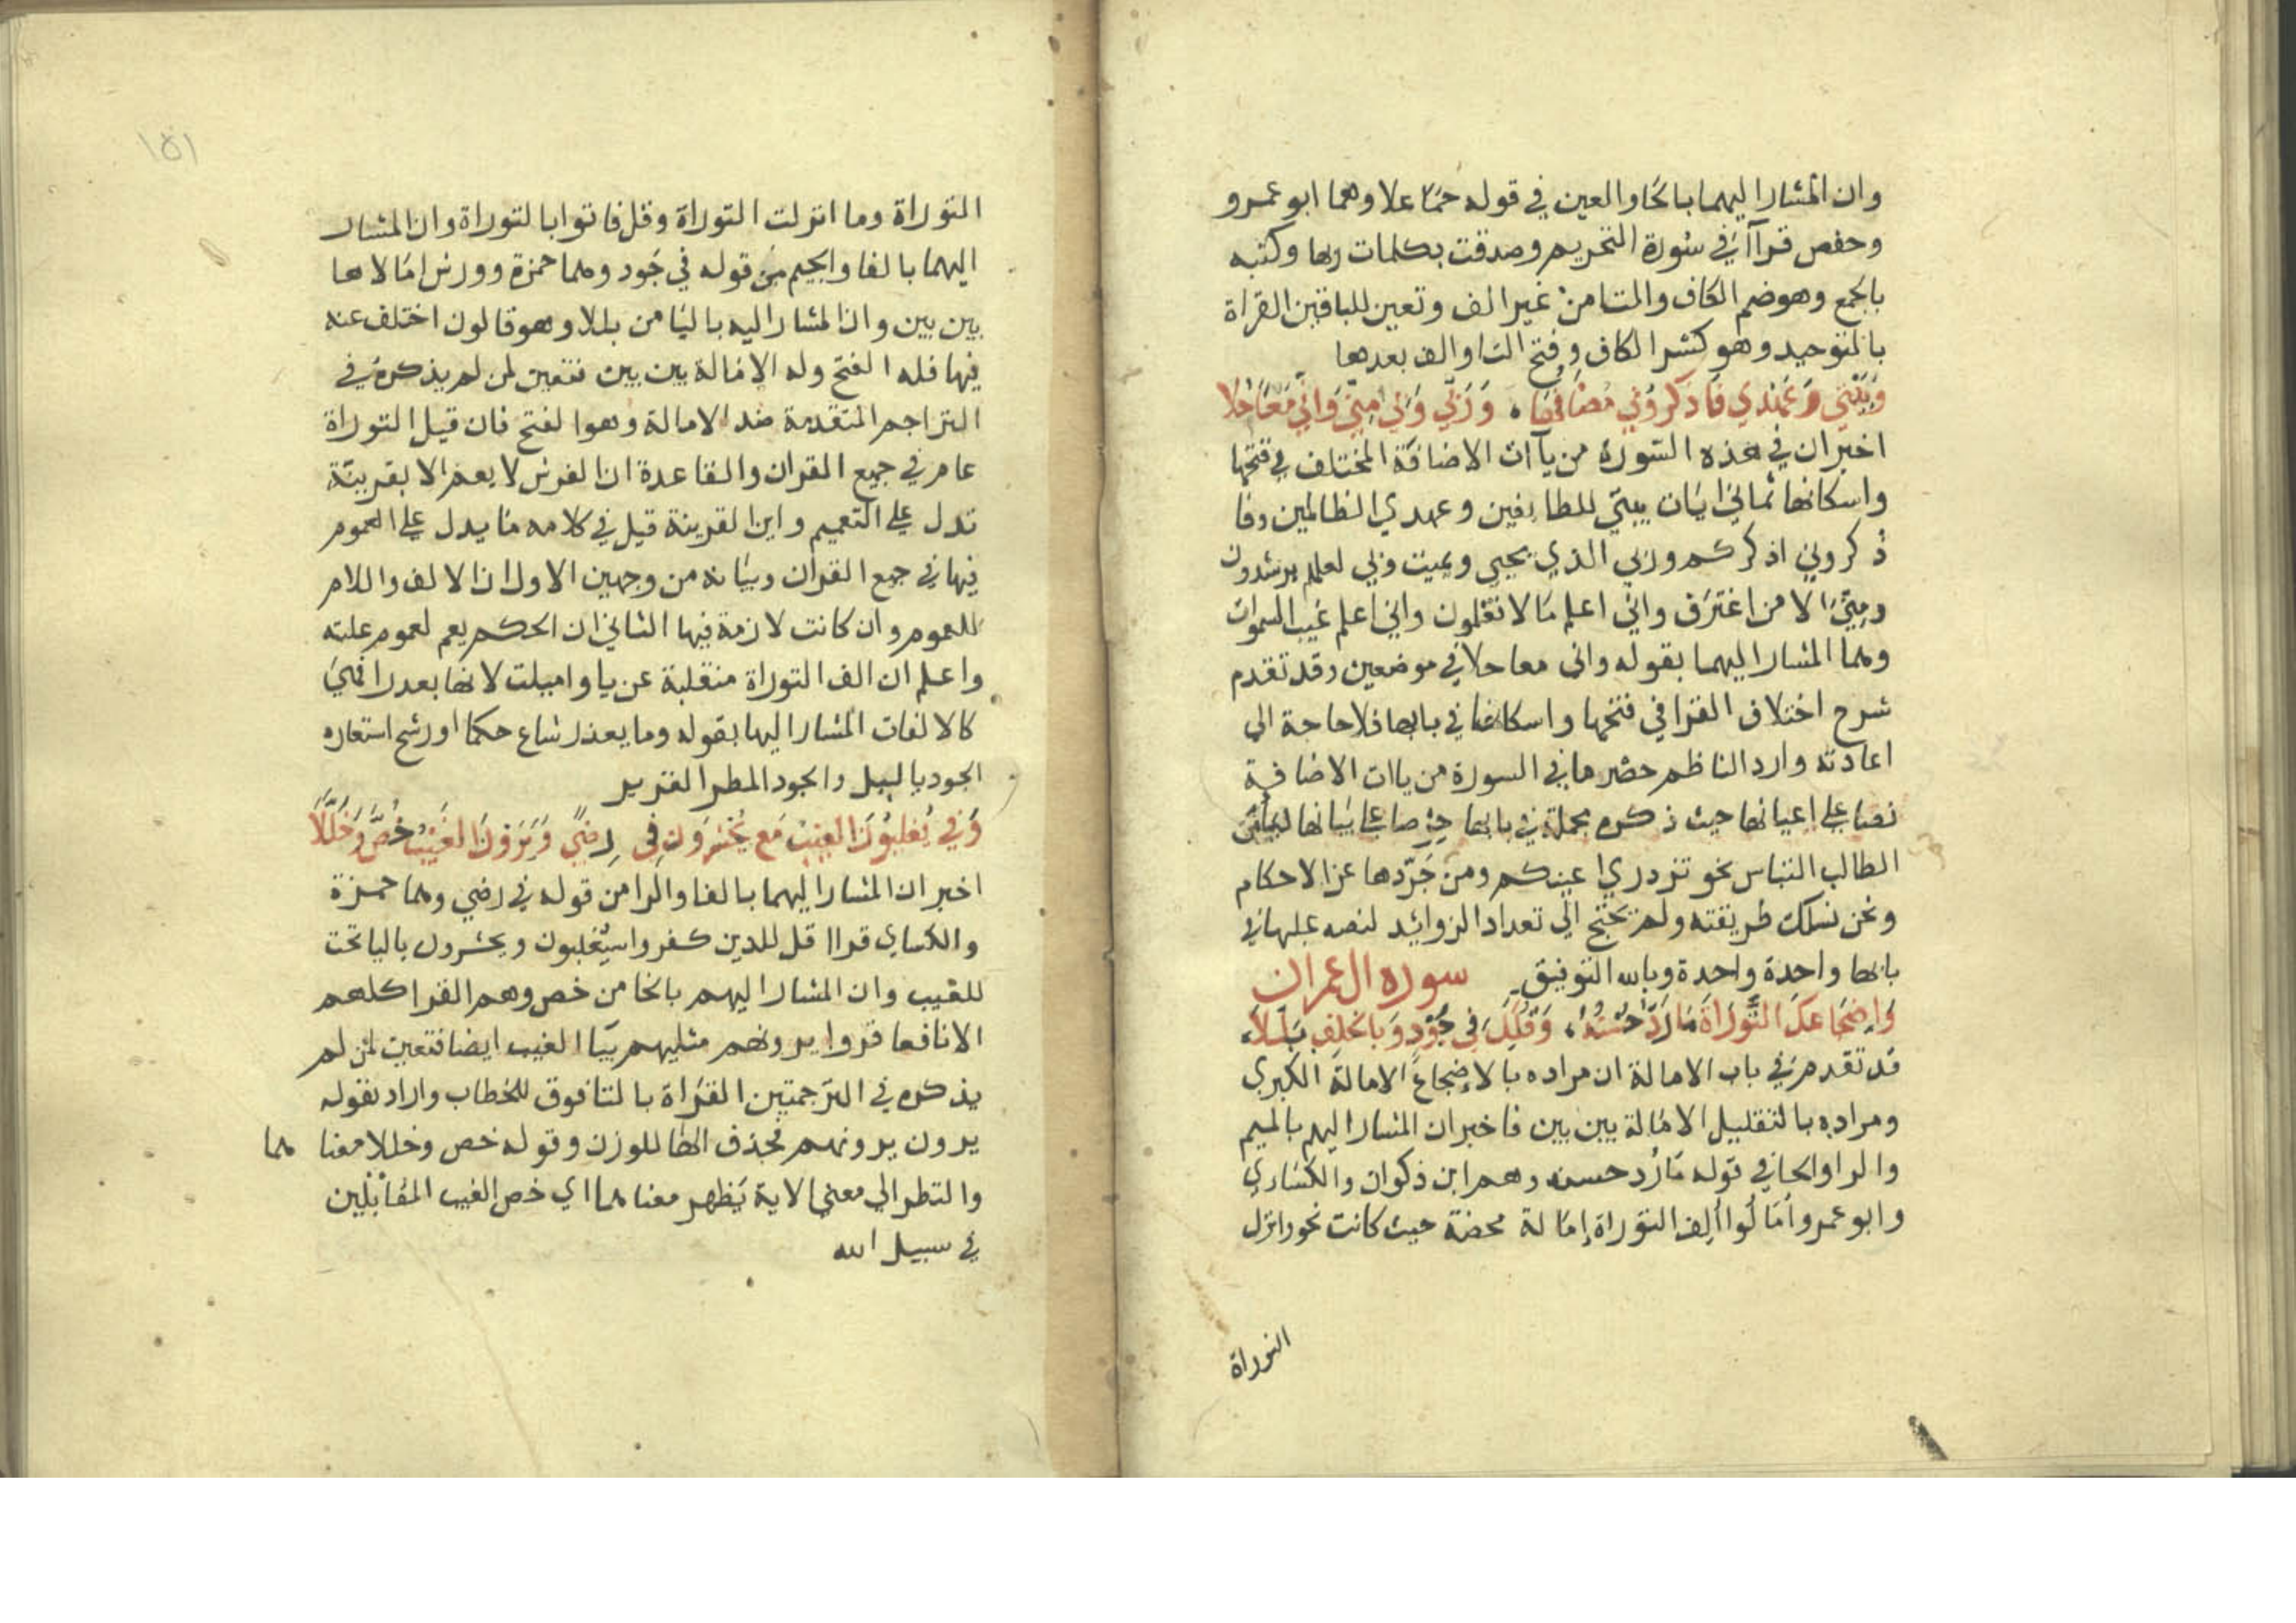 وان المشار اليهما بالحا والعين في قوله حما علا وهما ابو عمرو
وحفص قراآ في سورة التحريم وصدقت بكلمات ربها وكتبه
بالجمع وهو ضم الكاف والتا من غير الف وتعين للباقين القراة
بالتوحيد وهو كسر الكاف وفتح التا والف بعدها
وَبَيْتِي وَعَهْدِي فَاذكروني مُضَافُهَا ، وَرَبِّي وَبي مِنِّي وَانِّي مَعًا حُلَا
اخبر ان في هذه السورة من يآات الاضافة المختلف في فتحها
واسكانها ثماني ايات بيتي للطايفين وعهدي الظالمين وفا
ذكروني اذكركم وربي الذي يحيي ويميت وبي لعلهم يرشدون
ومني الا من اغترف واني اعلم ما لا تعلمون واني اعلم غيب السموات
وهما المشار اليهما بقوله واني معا حلا في موضعين وقد تقدم
شرح اختلاف القرا في فتحها واسكانها في بابها فلا حاجة الي
اعادته واراد الناظم حصر ما في السورة من ياات الاضافية
نصا علي اعيانها حيث ذكره مجملة في بابها حرصا علي بيانها ليامن
الطالب التباس نحو تزدري اعينكم ومن جَرّدها عن الاحكام
ونحن نسلك طريقته ولم نحتج الي تعداد الزوائد لنصه عليها في
بابها واحدة واحدة وبالله التوفيق سوره ال عمران
وَاِضجَاعكَ التَّورَاةَ مَا رَدَّ حُسْنُهُ ، وَقُلِّلَ في جَوْدٍ وَبالخلفِ بَلَّلَا
قد تقدم في باب الامالة ان مراده بالاضجاع الامالة الكبري
ومراده بالتقليل الامالة بين بين فاخبر ان المشار اليهم بالميم
والرا والحا في قوله مَا رُد حسنه وهم ابن ذكوان والكساءي
وابو عمرو أمَالُوا ألف التوراة إمَالة محضة حيث كانت نحو وانزل
التوراة
١٥١
التوراة وما انزلت التوراة وقل فاتوا بالتوراة وان المشار
اليهما بالفا والجيم من قوله في جَود وهما حمزة وورش امَالاها
بين بين وان المشار اليه باليا من بللا وهو قالون اختلف عنه
فيها فله الفتح وله الامالة بين بين فتعين لمن لم يذكره في
التراجم المتقدمة ضد الامالة وهو الفتح فان قيل التوراة
عام في جميع القران والقاعدة ان الفرش لا يعم الا بقرينة
تدل علي التعميم واين القرينة قيل في كلامه مَا يدل علي العموم
فيها في جمع القران وبيانه من وجهين الاول ان الالف واللام
للعموم وان كانت لازمة فيها الثاني ان الحكم يعم لعموم علته
واعلم ان الف التوراة منقلبة عن يا واميلت لانها بعد را فهي
كالالفات المشار اليها بقوله وما بعد را شاع حكما اورشح استعاره
الجود بالبلل والجود المطر الغزير
وَفي يُغلبُونَ الغيبُ مَع يُحْشَرُونَ في رِضىً وَيَرَوْنَ الغَيْبُ خُصَّ وَخَلَّلَا
اخبر ان المشار اليهما بالفا والرا من قوله في رضي وهما حمزة
والكساي قراا قل للدين كفروا سيُغلبون ويحشرون باليا تحت
للغيب وان المشار اليهم بالخا من خص وهم القرا كلهم
الا نافعا قروا يرونهم مثليهم بيَا الغيب ايضا فتعين لمن لم
يذكره في الترجمتين القراة بالتا فوق للخطاب واراد بقوله
يرون يرونهم فحذف الها للوزن وقوله خص وخللا معنا هما
والتطر الي معني الاية يَظهر معنا هما اي خص الغيب المقاتلين
في سبيل الله